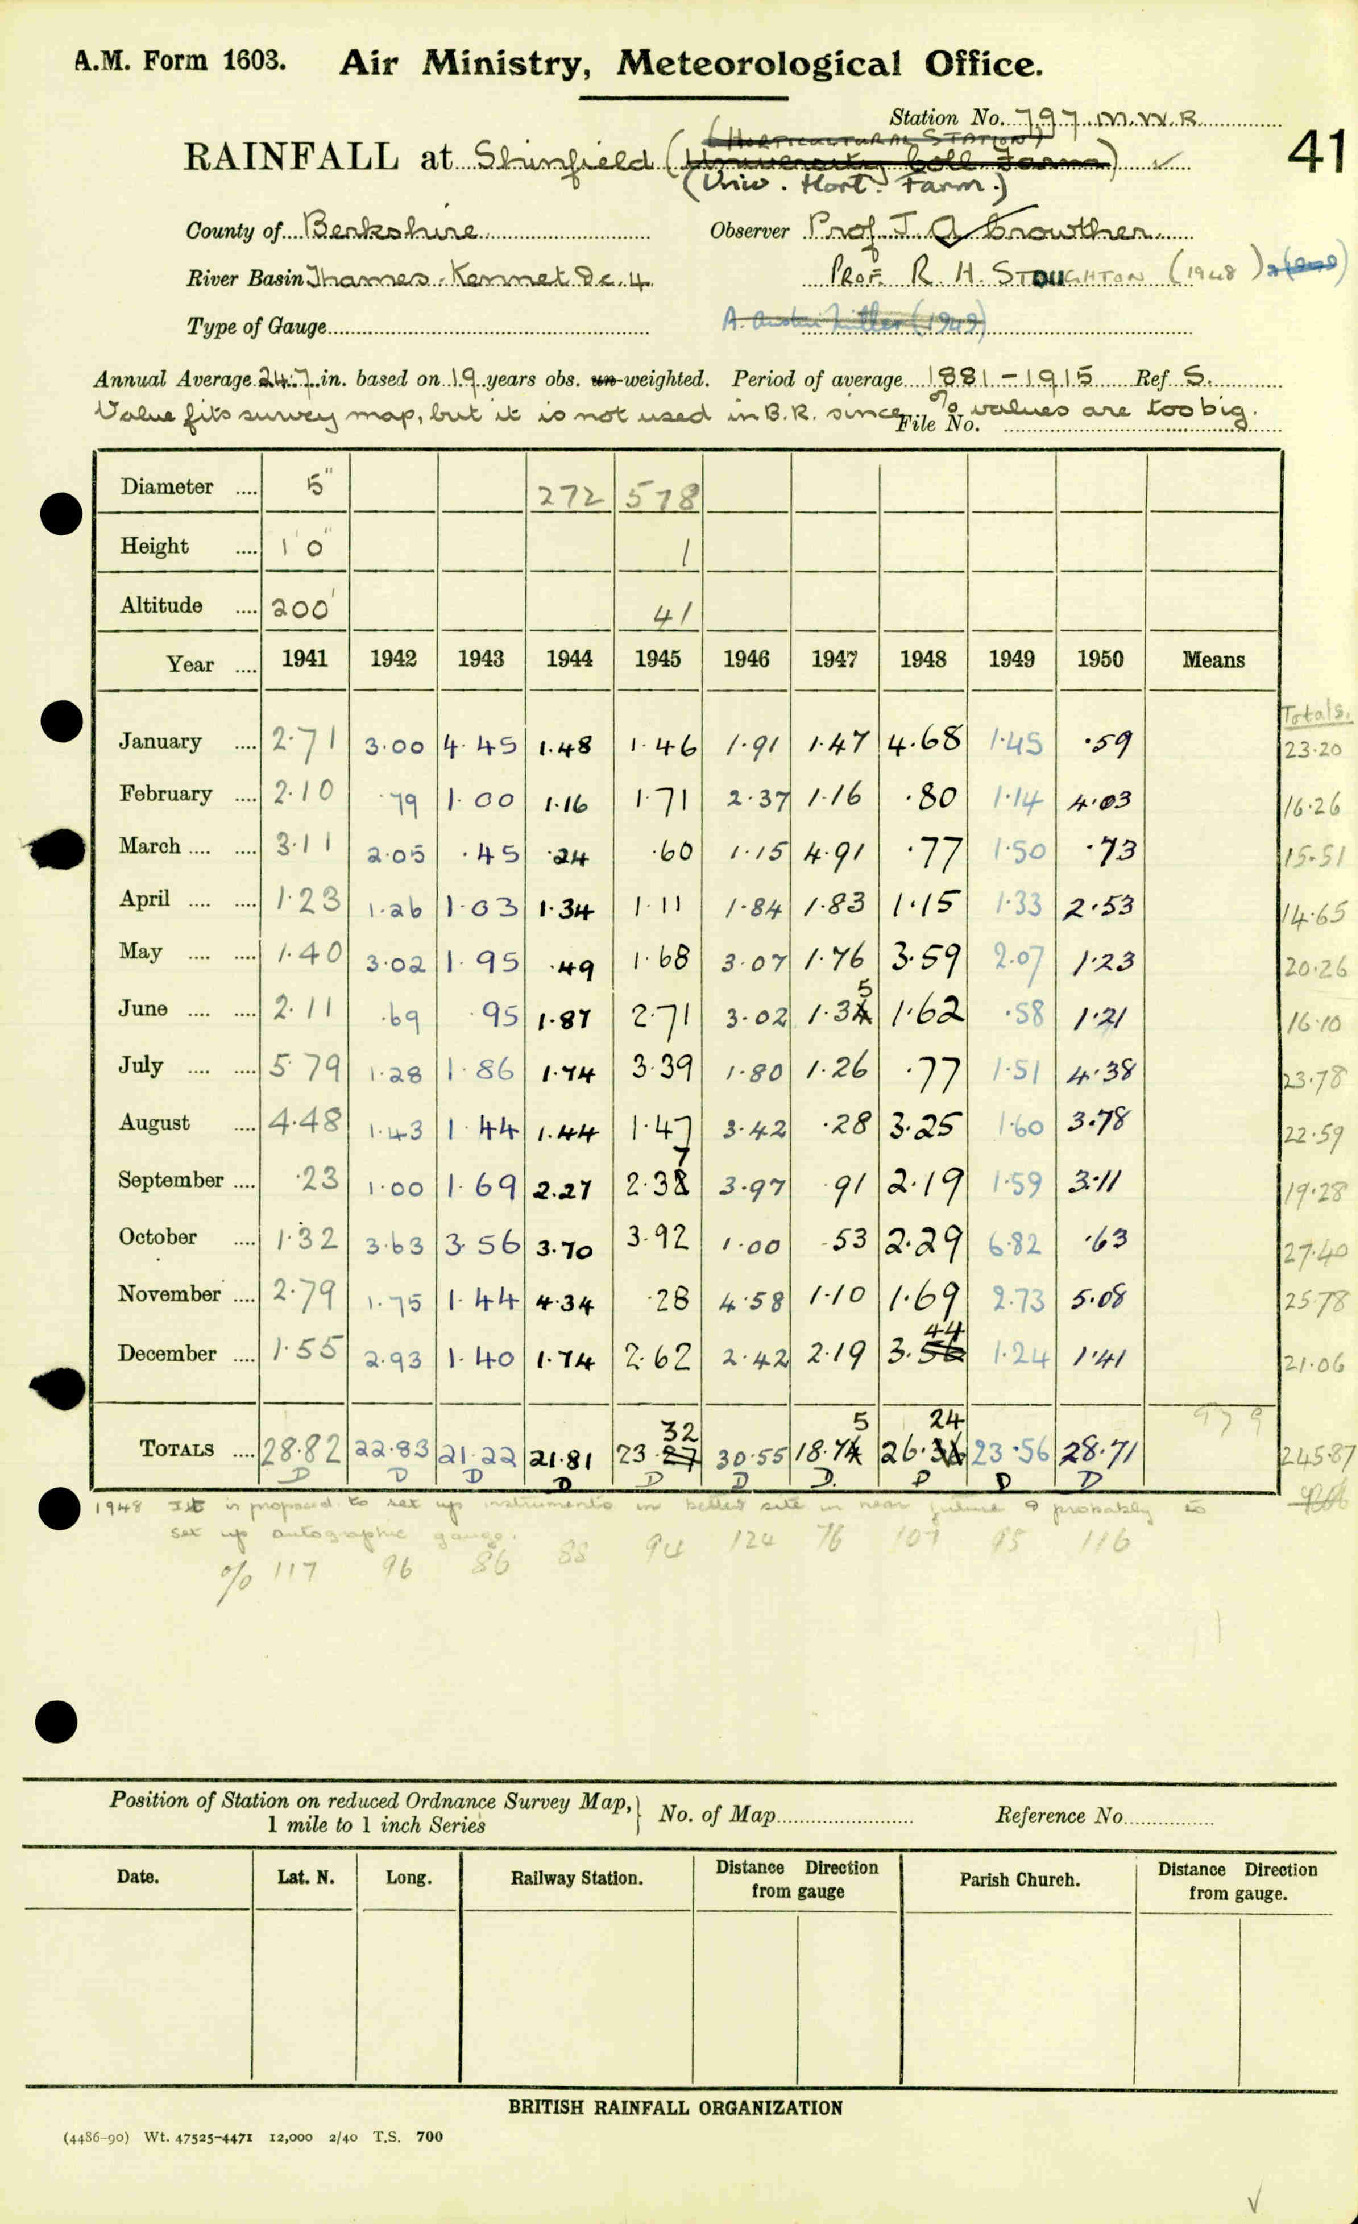 A.M. Form 1603. Air Ministry, Meteorological Office.
Station No. 797.M.W.R
(HORTICULTURAL STATION)
41
RAINFALL at Shinfield (University Coll Farm) ✓
(Univ. Hort. Farm.)
County of Berkshire Observer Prof J. A Crowther
River Basin Thames-Kennet Dc.4 PROF. R. H. STOUGHTON (1948)
Type of Gauge A. Austin Miller (1949)
Annual Average 24.7 in. based on 19 years obs. un-weighted. Period of average 1881-1915 Ref S.
Value fits survey map, but it is not used in B.R. since % values are too big.
File No.
Diameter .... 5" 272 578
Height .... 1'0" 1
Altitude .... 200' 41
Year .... 1941 1942 1943 1944 1945 1946 1947 1948 1949 1950 Means
Totals.
January .... 2.71 3.00 4.45 1.48 1.46 1.91 1.47 4.68 1.45 .59 23.20
February .... 2.10 .79 1.00 1.16 1.71 2.37 1.16 .80 1.14 4.03 16.26
March .... .... 3.11 2.05 .45 .24 .60 1.15 4.91 .77 1.50 .73 15.51
April .... .... 1.23 1.26 1.03 1.34 1.11 1.84 1.83 1.15 1.33 2.53 14.65
May .... .... 1.40 3.02 1.95 .49 1.68 3.07 1.76 3.59 2.07 1.23 20.26
5
June .... .... 2.11 .69 .95 1.87 2.71 3.02 1.34 1.62 .58 1.21 16.10
July .... .... 5.79 1.28 1.86 1.74 3.39 1.80 1.26 .77 1.51 4.38 23.78
August .... 4.48 1.43 1.44 1.44 1.47 3.42 .28 3.25 1.60 3.78 22.59
7
September .... .23 1.00 1.69 2.27 2.38 3.97 .91 2.19 1.59 3.11 19.28
October .... 1.32 3.63 3.56 3.70 3.92 1.00 .53 2.29 6.82 .63 27.40
November .... 2.79 1.75 1.44 4.34 .28 4.58 1.10 1.69 2.73 5.08 25.78
44
December .... 1.55 2.93 1.40 1.74 2.62 2.42 2.19 3.56 1.24 1.41 21.06
32 5 24 979
TOTALS .... 28.82 22.83 21.22 21.81 23.27 30.55 18.74 26.36 23.56 28.71 245.87
D D D D D D D. D D D
1948 It is proposed to set up instruments in better site in near future & probably to
set up autographic gauge.
% 117 96 86 88 94 124 76 107 95 116
Position of Station on reduced Ordnance Survey Map,
1 mile to 1 inch Series
No. of Map Reference No.
Date. Lat. N. Long. Railway Station. Distance Direction from gauge Parish Church. Distance Direction from gauge.
BRITISH RAINFALL ORGANIZATION
(4486-90) Wt. 47525-4471 12,000 2/40 T.S. 700